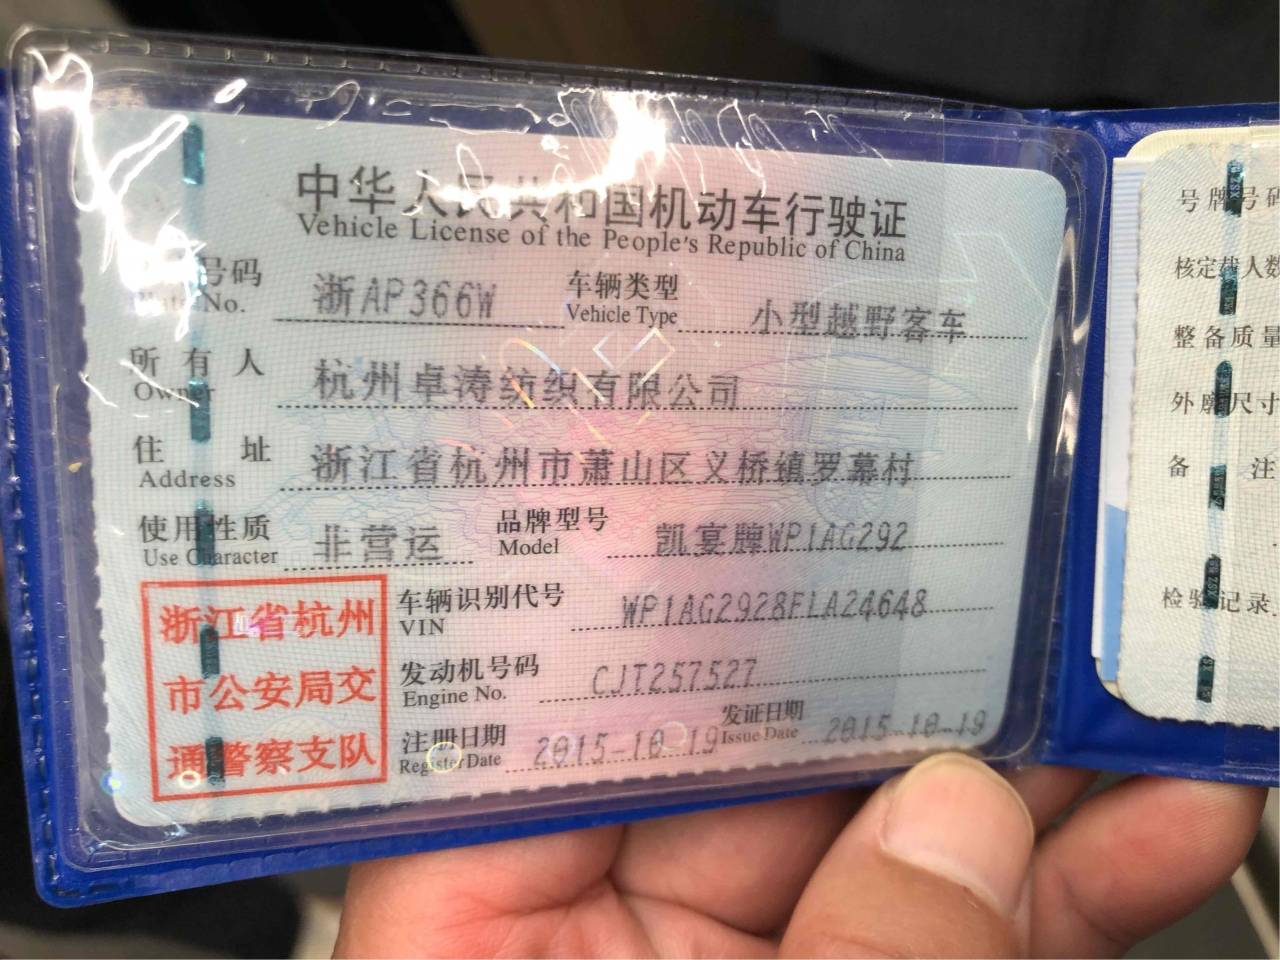 中华人民共和国机动车行驶证
Vehicle License of the People's Republic of China
号码 浙AP366W 车辆类型 小型越野客车
No. Vehicle Type
所有人 杭州卓涛纺织有限公司
Owner
住址 浙江省杭州市萧山区义桥镇罗幕村
Address
使用性质 非营运 品牌型号 凯宴牌WP1AG292
Use Character Model
车辆识别代号 WP1AG2928FLA24648
VIN
发动机号码 CJT257527
Engine No.
注册日期 2015-10-19 发证日期 2015-10-19
Register Date Issue Date
浙江省杭州
市公安局交
通警察支队
号牌号码
核定载人数
整备质量
外廓尺寸
备注
检验记录